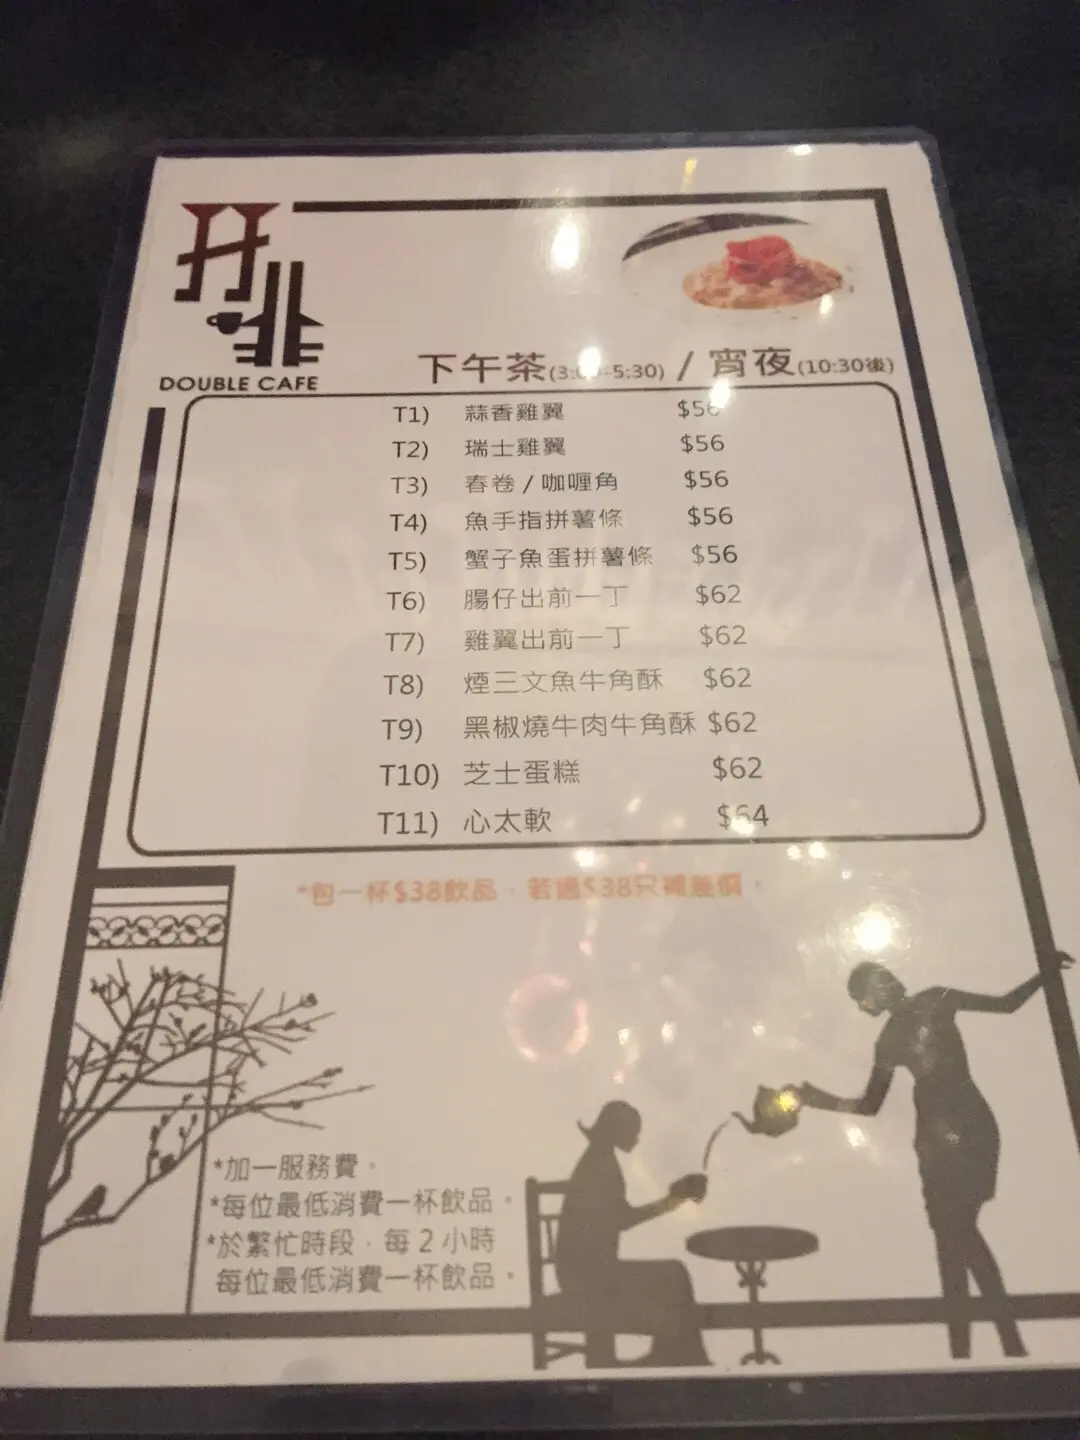 DOUBLE CAFE
下午茶(3:00-5:30) / 宵夜(10:30後)
T1) 蒜香雞翼 $56
T2) 瑞士雞翼 $56
T3) 春卷 / 咖喱角 $56
T4) 魚手指拼薯條 $56
T5) 蟹子魚蛋拼薯條 $56
T6) 腸仔出前一丁 $62
T7) 雞翼出前一丁 $62
T8) 煙三文魚牛角酥 $62
T9) 黑椒燒牛肉牛角酥 $62
T10) 芝士蛋糕 $62
T11) 心太軟 $64
*包一杯$38飲品，若過$38只補差價。
*加一服務費。
*每位最低消費一杯飲品。
*於繁忙時段，每2小時
每位最低消費一杯飲品。